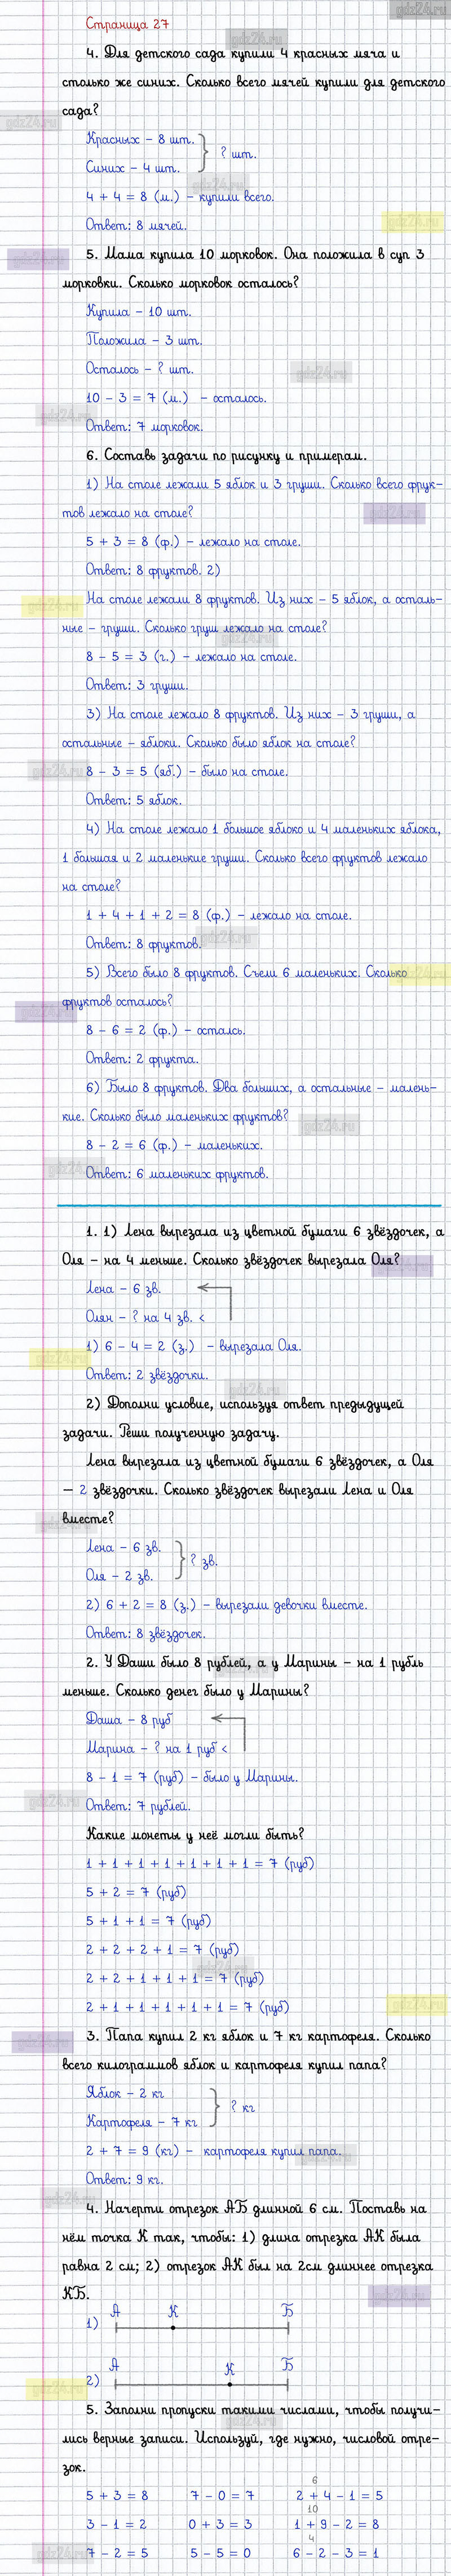 Страница 27
4. Для детского сада купили 4 красных мяча и
столько же синих. Сколько всего мячей купили для детского
сада?
Красных – 8 шт.
? шт.
Синих – 4 шт.
4 + 4 = 8 (м.) – купили всего.
Ответ: 8 мячей.
5. Мама купила 10 морковок. Она положила в суп 3
морковки. Сколько морковок осталось?
Купила – 10 шт.
Положила – 3 шт.
Осталось – ? шт.
10 – 3 = 7 (м.) – осталось.
Ответ: 7 морковок.
6. Составь задачи по рисунку и примерам.
1) На столе лежали 5 яблок и 3 груши. Сколько всего фрук-
тов лежало на столе?
5 + 3 = 8 (ф.) – лежало на столе.
Ответ: 8 фруктов. 2)
На столе лежали 8 фруктов. Из них – 5 яблок, а осталь-
ные – груши. Сколько груш лежало на столе?
8 – 5 = 3 (г.) – лежало на столе.
Ответ: 3 груши.
3) На столе лежало 8 фруктов. Из них – 3 груши, а
остальные – яблоки. Сколько было яблок на столе?
8 – 3 = 5 (яб.) – было на столе.
Ответ: 5 яблок.
4) На столе лежало 1 большое яблоко и 4 маленьких яблока,
1 большая и 2 маленькие груши. Сколько всего фруктов лежало
на столе?
1 + 4 + 1 + 2 = 8 (ф.) – лежало на столе.
Ответ: 8 фруктов.
5) Всего было 8 фруктов. Съели 6 маленьких. Сколько
фруктов осталось?
8 – 6 = 2 (ф.) – осталсь.
Ответ: 2 фрукта.
6) Было 8 фруктов. Два больших, а остальные – малень-
кие. Сколько было маленьких фруктов?
8 – 2 = 6 (ф.) – маленьких.
Ответ: 6 маленьких фруктов.
1. 1) Лена вырезала из цветной бумаги 6 звёздочек, а
Оля – на 4 меньше. Сколько звёздочек вырезала Оля?
Лена – 6 зв.
Олян – ? на 4 зв. <
1) 6 – 4 = 2 (з.) – вырезала Оля.
Ответ: 2 звёздочки.
2) Дополни условие, используя ответ предыдущей
задачи. Реши полученную задачу.
Лена вырезала из цветной бумаги 6 звёздочек, а Оля
– 2 звёздочки. Сколько звёздочек вырезали Лена и Оля
вместе?
Лена – 6 зв.
? зв.
Оля – 2 зв.
2) 6 + 2 = 8 (з.) – вырезали девочки вместе.
Ответ: 8 звёздочек.
2. У Даши было 8 рублей, а у Марины – на 1 рубль
меньше. Сколько денег было у Марины?
Даша – 8 руб
Марина – ? на 1 руб <
8 – 1 = 7 (руб) – было у Марины.
Ответ: 7 рублей.
Какие монеты у неё могли быть?
1 + 1 + 1 + 1 + 1 + 1 + 1 = 7 (руб)
5 + 2 = 7 (руб)
5 + 1 + 1 = 7 (руб)
2 + 2 + 2 + 1 = 7 (руб)
2 + 2 + 1 + 1 + 1 = 7 (руб)
2 + 1 + 1 + 1 + 1 + 1 = 7 (руб)
3. Папа купил 2 кг яблок и 7 кг картофеля. Сколько
всего килограммов яблок и картофеля купил папа?
Яблок – 2 кг
? кг
Картофеля – 7 кг
2 + 7 = 9 (кг) – картофеля купил папа.
Ответ: 9 кг.
4. Начерти отрезок АБ длинной 6 см. Поставь на
нём точка К так, чтобы: 1) длина отрезка АК была
равна 2 см; 2) отрезок АК был на 2см длиннее отрезка
КБ.
1) А К Б
2) А К Б
5. Заполни пропуски такими числами, чтобы получи-
лись верные записи. Используй, где нужно, числовой отре-
зок.
6
5 + 3 = 8 7 – 0 = 7 2 + 4 – 1 = 5
10
3 – 1 = 2 0 + 3 = 3 1 + 9 – 2 = 8
4
7 – 2 = 5 5 – 5 = 0 6 – 2 – 3 = 1